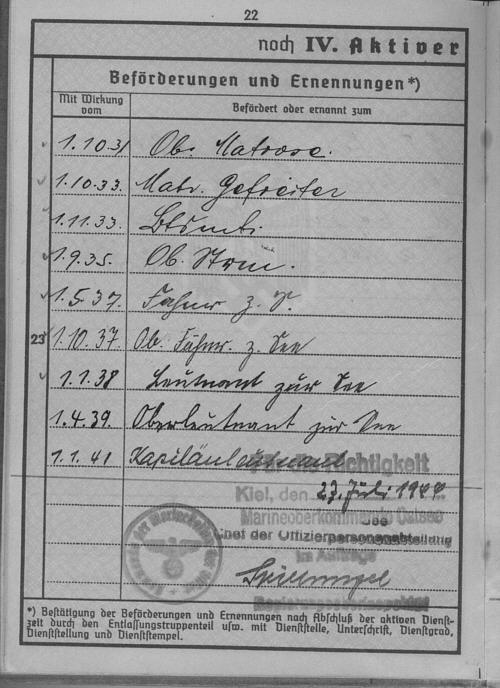 22
noch IV. Aktiver
Beförderungen und Ernennungen *)
Mit Wirkung vom
Befördert oder ernannt zum
1.10.31 Ob. Matrose.
1.10.33. Matr. Gefreiter
1.11.33. Btsmt.
1.9.35. Ob. Strm.
1.5.37. Fähnr. z. S.
23 1.10.37. Ob. Fähnr. z. See
1.1.38 Leutnant zur See
1.4.39. Oberleutnant zur See
1.1.41 Kapitänleutnant
Für die Richtigkeit
Kiel, den 27. Juli 1944
Marineoberkommando Ostsee
Der
Chef der Offizierpersonalabteilung
Im Auftrage
*) Bestätigung der Beförderungen und Ernennungen nach Abschluß der aktiven Dienst-
zeit durch den Entlassungstruppenteil usw. mit Dienststelle, Unterschrift, Dienstgrad,
Dienststellung und Dienststempel.